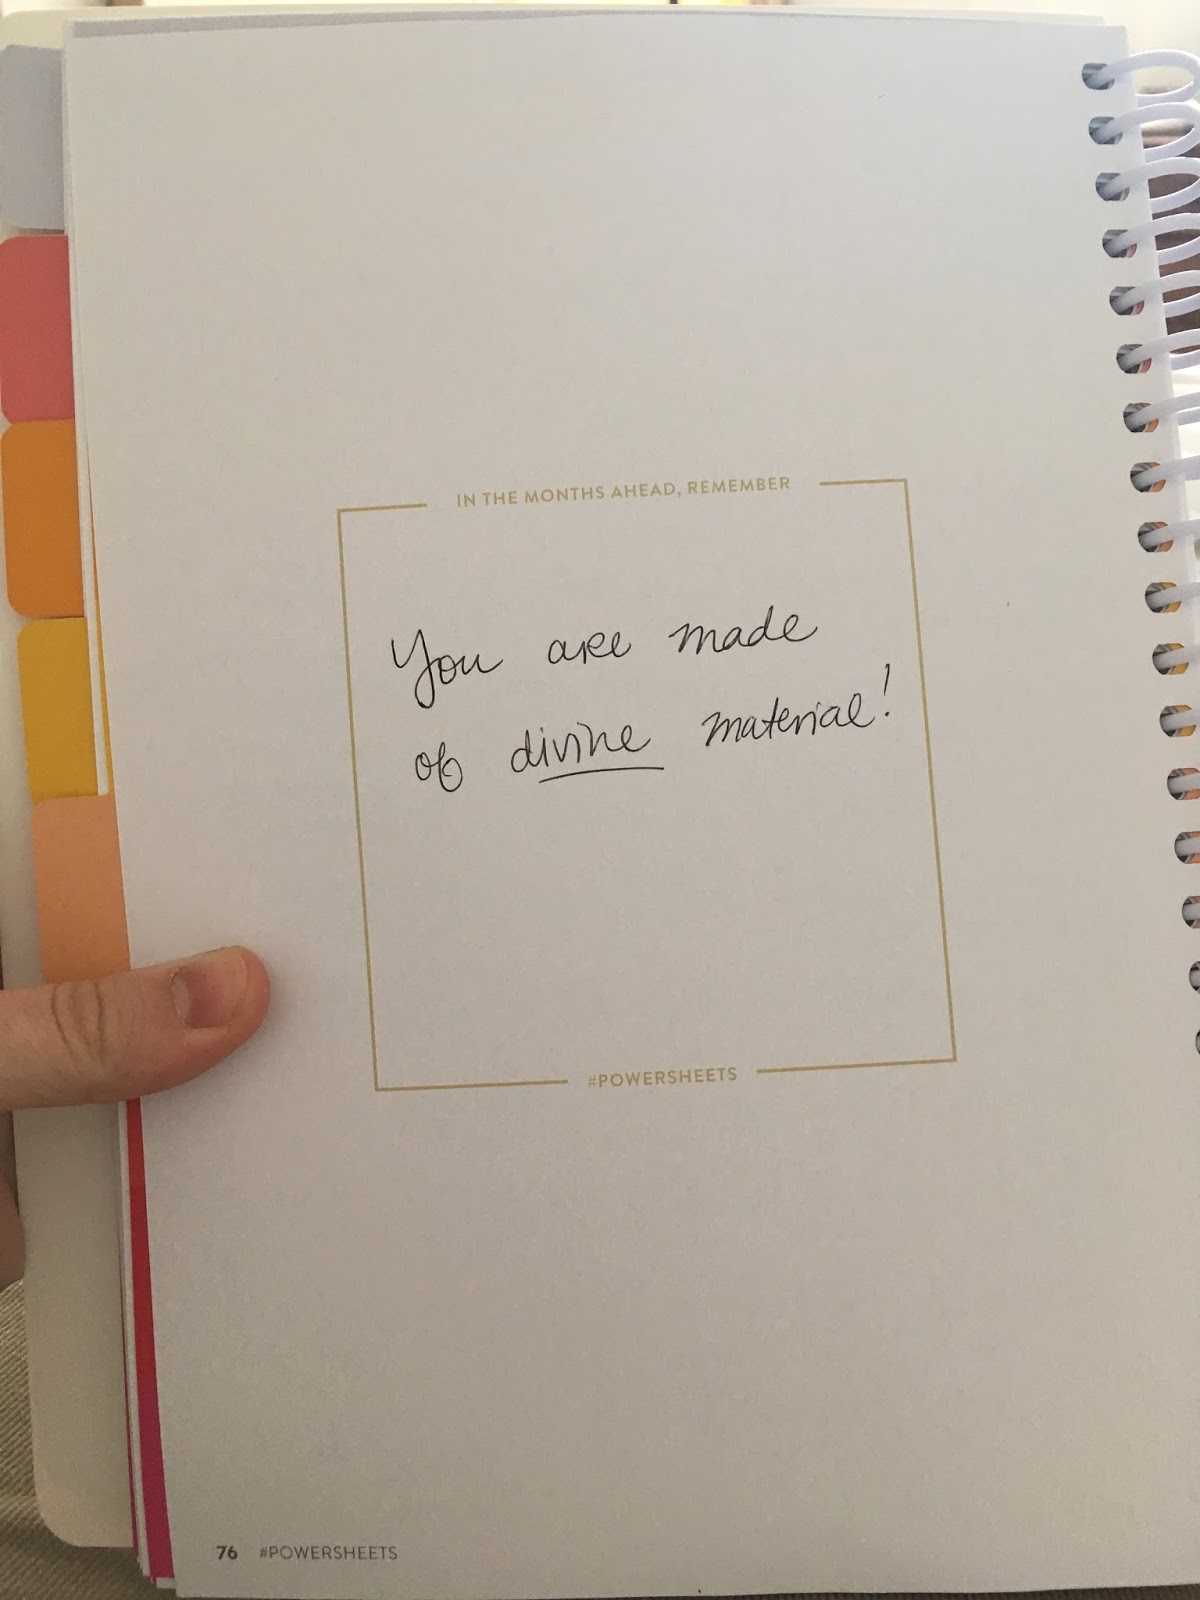 IN THE MONTHS AHEAD, REMEMBER
You are made
of divine material!
#POWERSHEETS
76 #POWERSHEETS